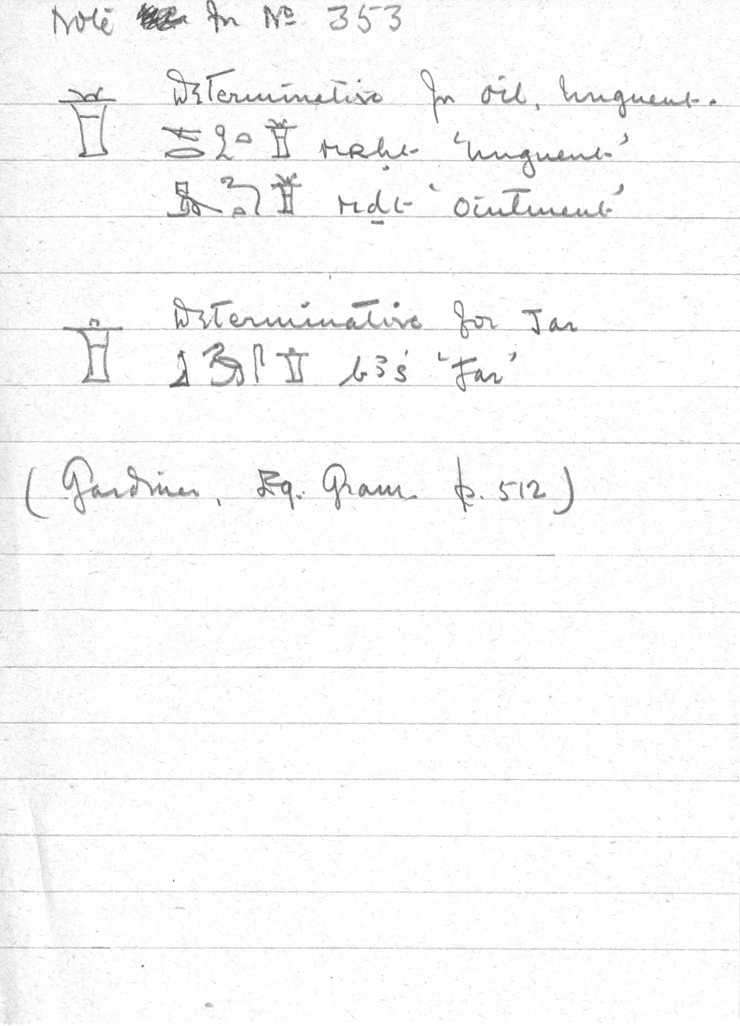 Note for No 353
Determinative for oil, unguent.
mrḥt 'unguent'
mḏt 'ointment'
Determinative for Jar
b3ś 'Jar'
(Gardiner, Eg. Gram. p. 512)